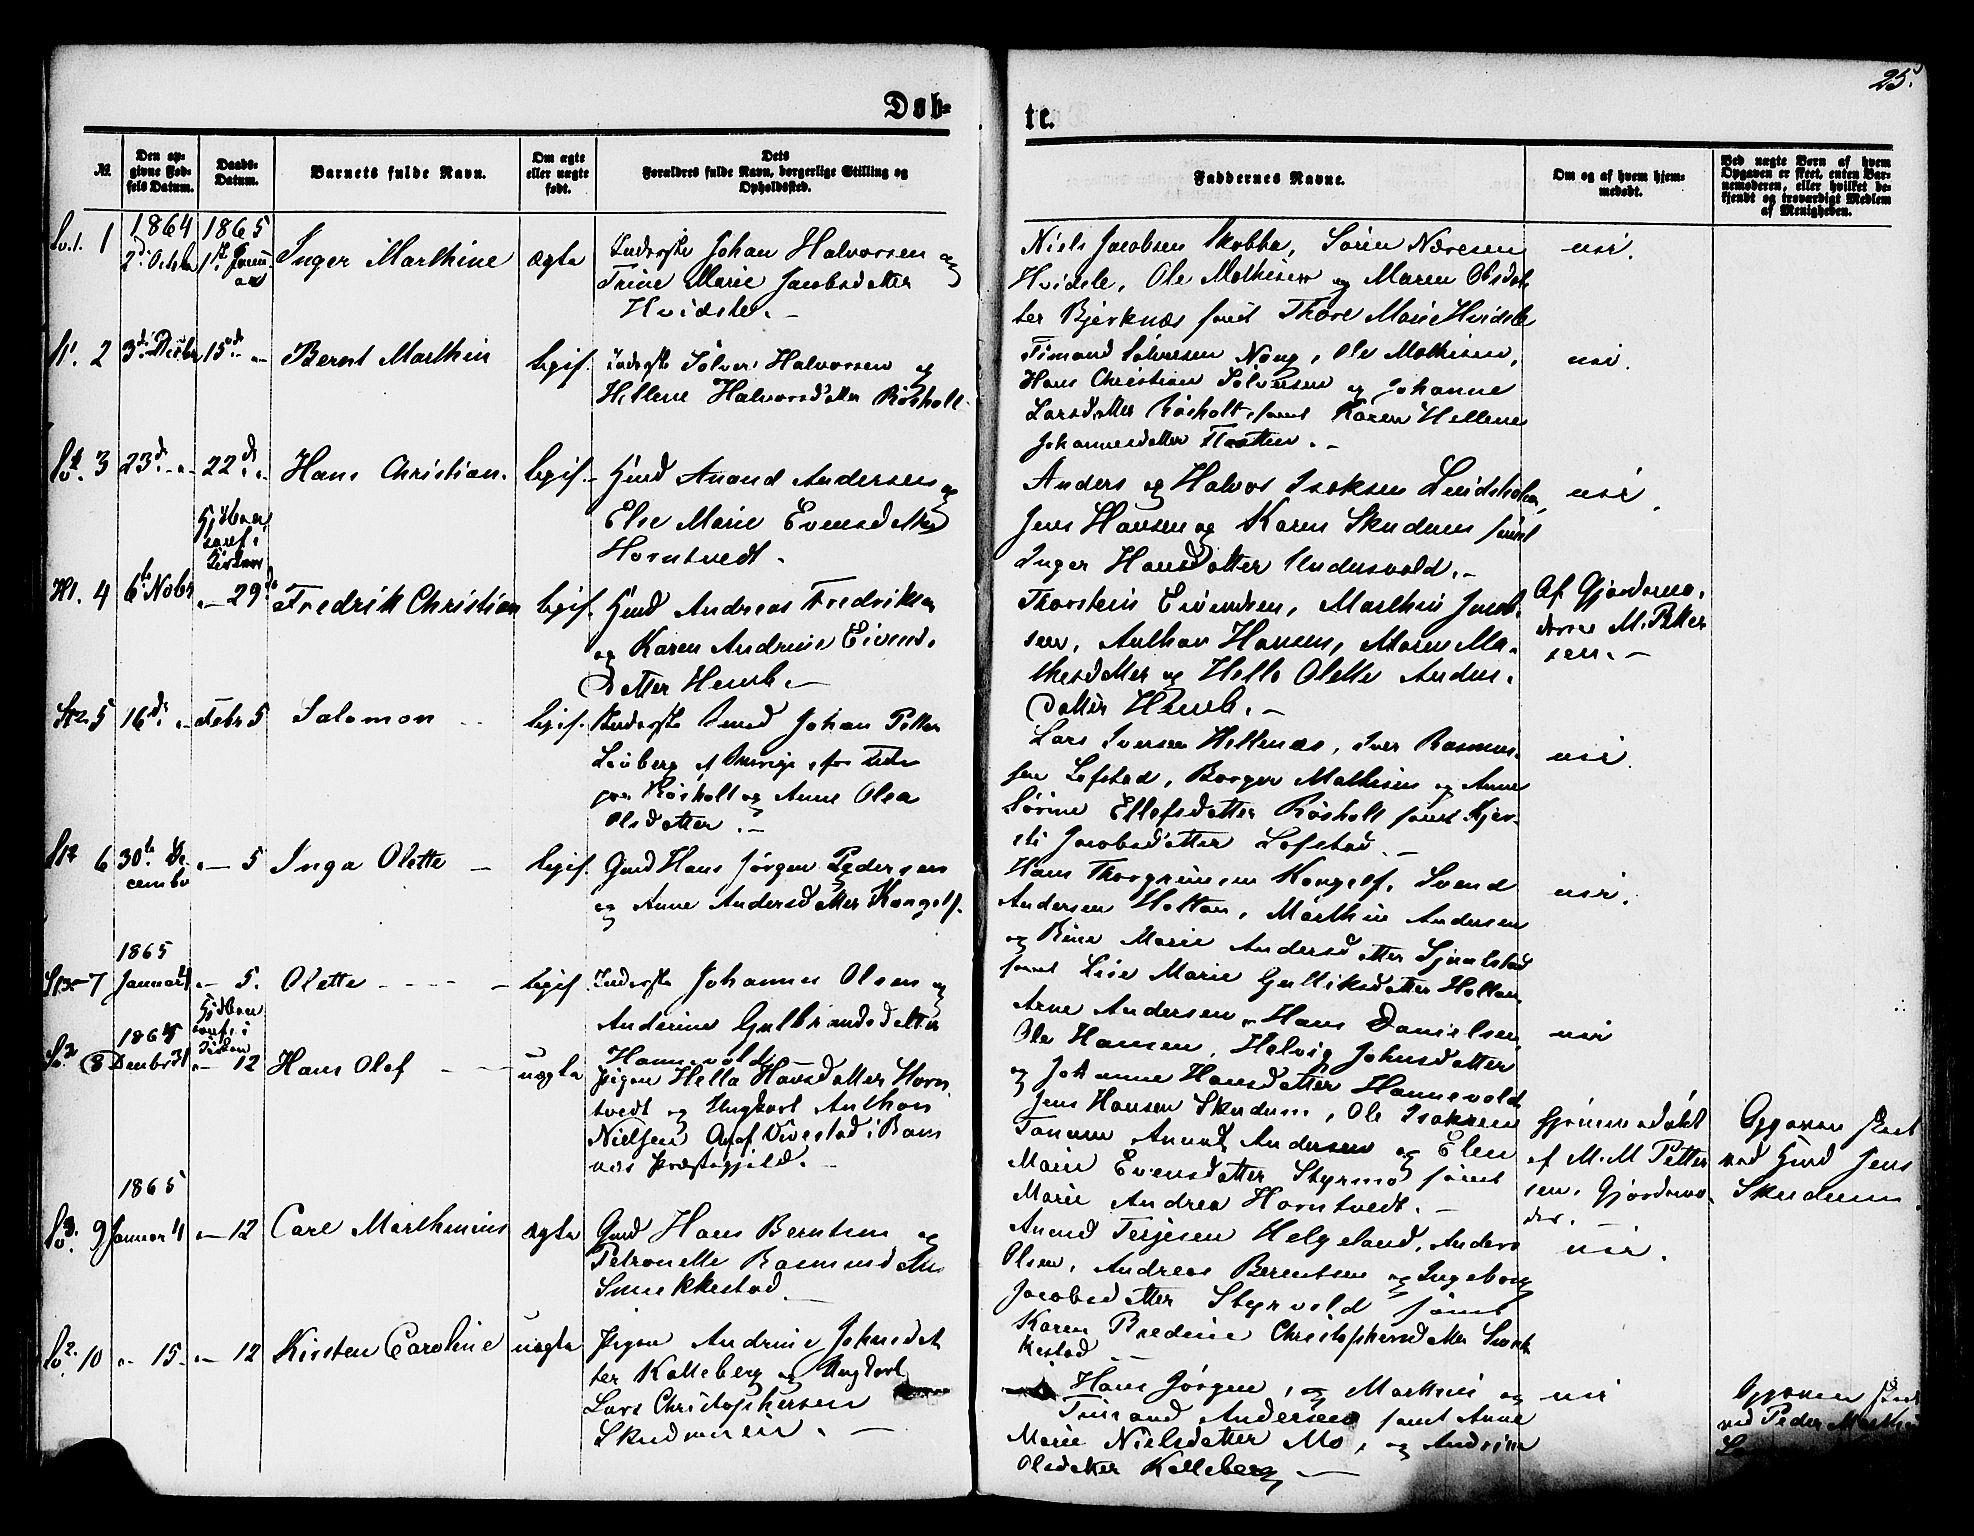 25.
Døb=
te.
№
Den op=
givne Fød=
sels Datum.
Daabs=
Datum.
Barnets fulde Navn.
Om ægte
eller uægte
født.
Dets
Forældres fulde Navn, borgerlige Stilling og
Opholdssted.
Faddernes Navne.
Om og af hvem hjem=
medøbt.
Ved uægte Børn af hvem
Opgaven er skeet, enten Bar=
nemoderen, eller hvilket be=
kjendt og troværdigt Medlem
af Menigheden.
1
1864
1865
Inger Marthine
ægte
Inderste Johan Halvorsen og
Trine Marie Jacobsdatter
Hvidste. -
Niels Jacobsen Skobba, Sören
Ole Mathisen og Maren Olsdat
ter Bjerknæs samt Thore Marie
nei.
2
3d
15de
Bernt Marthin
legif.
Inderste Sölver Halvorsen og
Hellene Halvorsdatter Röshalt.
Ole Mathisen,
Hans Christian Sölversen og Johanne
Larsdatter Röisholt, samt Karen Hellene
Johannesdatter
nei.
3
23d
22d
Hans Christian.
legif.
Gmd Anund Andersen og
Else Marie Evensdatter
Horntvedt.
Anders og Halvor Isaksen
Jens Hansen og Karen Skudum samt
Inger Hansdatter
nei.
4
6te Nobr
29de
Fredrik Christian
legif.
Gmd Andreas Fredriksen
og Karen Andrine Eivind.
datter
Thorstein Eivindsen, Marthin Jacob
sen, Anthon Hansen, Maren Ma-
thisdatter og Helle Olette Anders.
datter
Af Gjordemo.
deren M. Petter
sen. -
5
16de
Febr 5
Salomon
legif.
Inderste Smed Johan Petter
Röisholt og Anne Olea
Olsdatter. -
Lars Iversen Hellenæs, Iver Rasmus-
sen Löfstad, Borger Mathisen og Anne
Sörine Ellefsdatter Röisholt samt Kjer-
sti Jacobsdatter Löfstad. -
nei.
6
30te De
cembr
5
Inga Olette
legif.
Gmd Hans Jörgen Pedersen
og Anne Andersdatter Kongelf.
Hans Thorgrimsen Kongelf, Svend
Andersen Holtan, Marthin Andersen
og Rine Marie Andersdatter
samt Lise Marie Gulliksdatter Holtan
nei.
1865
7
Januar 4
5.
Olette
legif
Inderste Johannes Olsen og
Andrine Gulbrandsdatter
Hannevold
Arne Andersen, Hans Danielsen,
Ole Hansen, Helvig Johnsdatter
og Johanne Hansdatter Hannevold
nei
8
31
12
Hans Olaf
uægte
Pigen Hella Hansdatter Horn
tvedt og Ungkarl Anthon
Nielsen
næs Præstegjeld. -
Jens Hansen Skudum, Ole Isaksen
Anund Andersen og Elen
Marie Evensdatter Styrmo samt
Marie Andrea Horntvedt. -
Hjemmedøbt
af M. M Petter
sen, Gjordemo-
der.
Opgaven skeet
ved Gmd Jens
Skudum
1865
9
Januar 4
12
Carl Marthinius
ægte
Gmd Hans Berntsen og
Petronelle Rasmusdatter
Smukkestad
Anund Terjesen Helgeland, Anders
Olsen, Andreas Berentsen og Ingeborg
Jacobsdatter Styrvold samt
Karen Bredine Christophersdatter Smuk
kestad
nei.
10
15
12
Kirsten Caroline
uægte
Pigen Andrine Johnsdat
ter Kalleberg og Ungkarl
Lars Christophersen
Hans Jörgen, og Marthin og
Andersen samt Anne
Marie Nielsdatter Mo, og Andrine
Olsdatter Kalleberg -
nei
Opgaven skeet
ved Peder